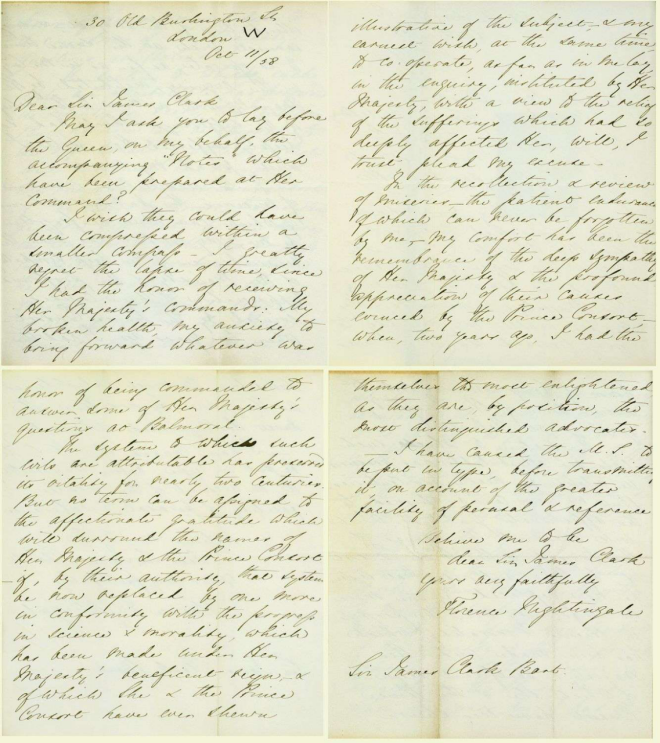 30 Old Burlington St
London W
Oct 11/58
Dear Sir James Clark
May I ask you to lay before
the Queen, on my behalf, the
accompanying "Notes" which
have been prepared at Her
Command?
I wish they could have
been compressed within a
smaller compass - I greatly
regret the lapse of time, since
I had the honor of receiving
Her Majesty's commands. My
broken health, my anxiety to
bring forward whatever was
illustrative of the subject, & my
earnest wish, at the same time,
to co-operate, as far as in me lay
in the enquiry, instituted by Her
Majesty, with a view to the relief
of the sufferings which had so
deeply affected Her, will, I
trust plead my excuse -
In the recollection & review
of miseries - the patient endurance
of which can never be forgotten
by me - my comfort has been the
remembrance of the deep sympathy
of Her Majesty & the profound
appreciation of their causes
evinced by the Prince Consort -
when, two years ago, I had the
honor of being commanded to
answer some of Her Majesty's
questions at Balmoral.
The system to which such
evils are attributable has preserved
its vitality for nearly two centuries.
But no term can be assigned to
the affectionate gratitude which
will surround the names of
Her Majesty & the Prince Consort
if, by their authority, that system
be now replaced by one more
in conformity with the progress
in science & morality, which
has been made under Her
Majesty's beneficent reign, &
of which She & the Prince
Consort have ever shewn
themselves the most enlightened
as they are, by position, the
most distinguished advocates.
- I have caused the M.S. to
be put in type, before transmitting
it, on account of the greater
facility of perusal & reference
Believe me to be
dear Sir James Clark
yours very faithfully
Florence Nightingale
Sir James Clark Bart.